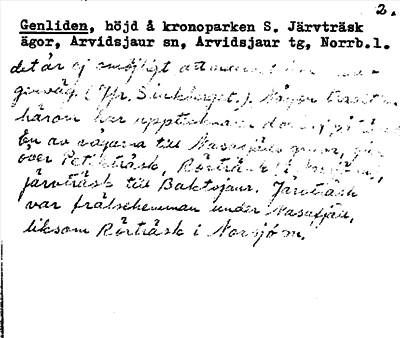 2.
Genliden, höjd å kronoparken S. Järvträsk
ägor, Arvidsjaur sn, Arvidsjaur tg, Norrb.l.
det är ej omöjligt att
genväg. (Jfr. Sinkberget.). Någon
härom har upptecknaren dock ej
En av vägarna till Nasafjäll
över Petikträsk, Rörträsk i
Järvträsk till Baktsjaur. Järvträsk
var frälsehemman under Nasafjäll,
liksom Rörträsk i Norsjö sn.